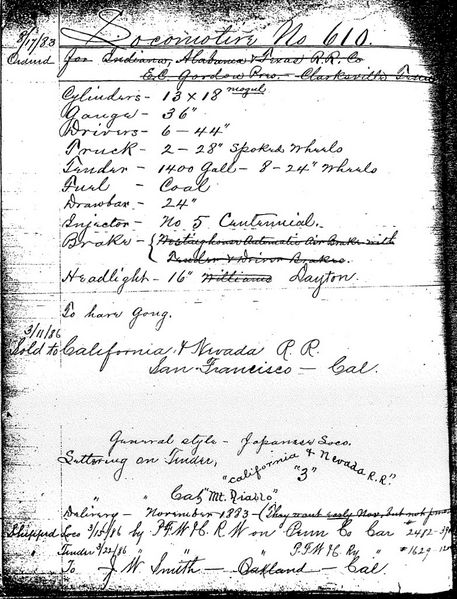 8/17/83 Locomotive No 610.
Ordered for Indiana, Alabama & Texas R.R. Co
E.C. Gordon Pres. - Clarksville Tenn
Cylinders - 13 x 18 mogul
Gauge - 36"
Drivers - 6 - 44"
Truck - 2 - 28" Spoked Wheels
Tender - 1400 Gall - 8 - 24" Wheels
Fuel - Coal
Drawbar - 24"
Injector - No 5 Centennial.
Brake - { Westinghouse Automatic Air Brake with
Tender & Driver Brakes.
Headlight - 16" Williams Dayton.
To have Gong.
3/11/86
Sold to California & Nevada R.R.
San Francisco - Cal.
General style - Japanese Loco.
Lettering on Tender, "California & Nevada R.R"
"3"
" " Cab "Mt. Diablo"
Delivery - November 1883 - (They want early Nov. but not
Shipped Loco 3/15/86 by P.F.W & C. R W on Penn Co Car # 2412
" Tender 3/22/86 " " P.F.W & C Ry " # 1629
To J. W. Smith - Oakland - Cal.